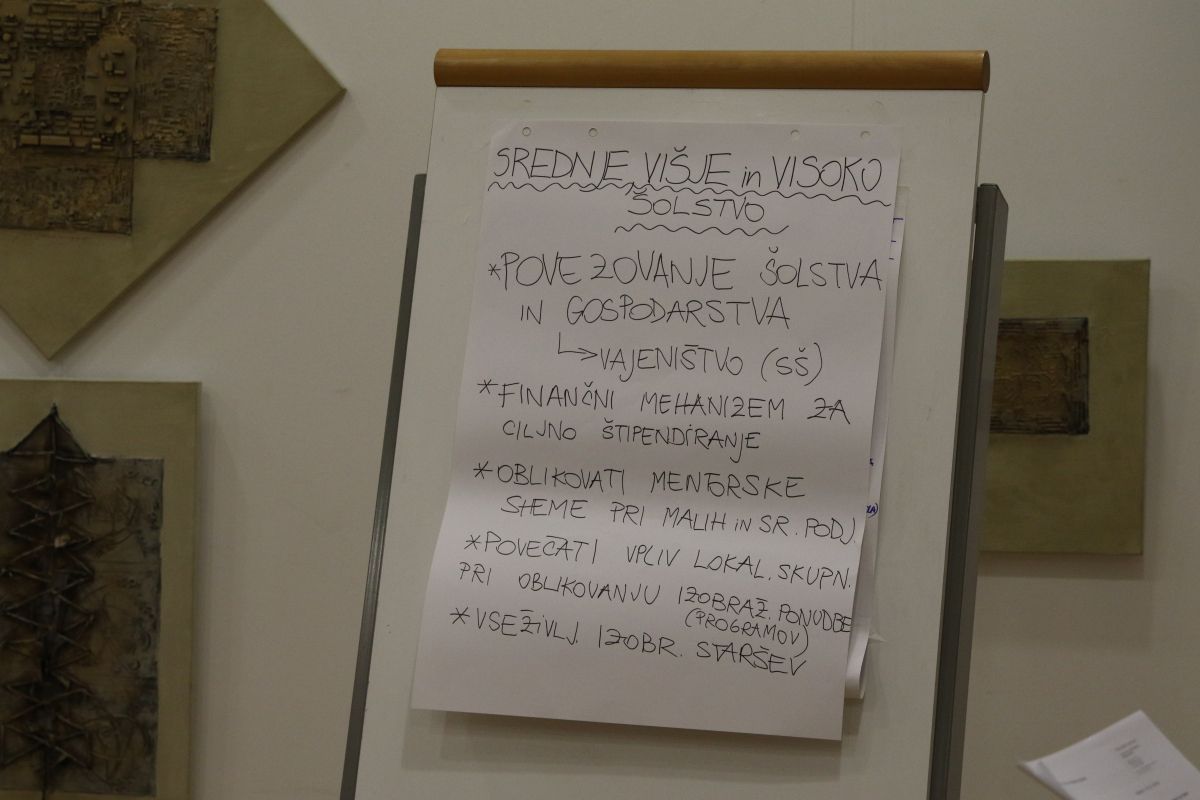 SREDNJE, VIŠJE in VISOKO
ŠOLSTVO
*POVEZOVANJE ŠOLSTVA
IN GOSPODARSTVA
↳VAJENIŠTVO (SŠ)
*FINANČNI MEHANIZEM ZA
CILJNO ŠTIPENDIRANJE
*OBLIKOVATI MENTORSKE
SHEME PRI MALIH in SR. PODJ.
*POVEČATI VPLIV LOKAL. SKUPN.
PRI OBLIKOVANJU IZOBRAŽ. PONUDBE
(PROGRAMOV)
*VSEŽIVLJ. IZOBR. STARŠEV